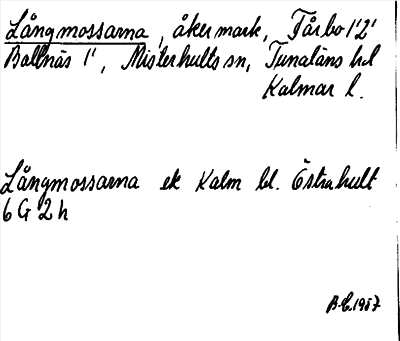 Långmossarna, åkermark, Fårbo 1'2'
Ballnäs 1', Misterhults sn, Tunaläns hd
Kalmar l.
Långmossarna ek Kalm bl. Östrahult
6 G 2 h
B-C.1987